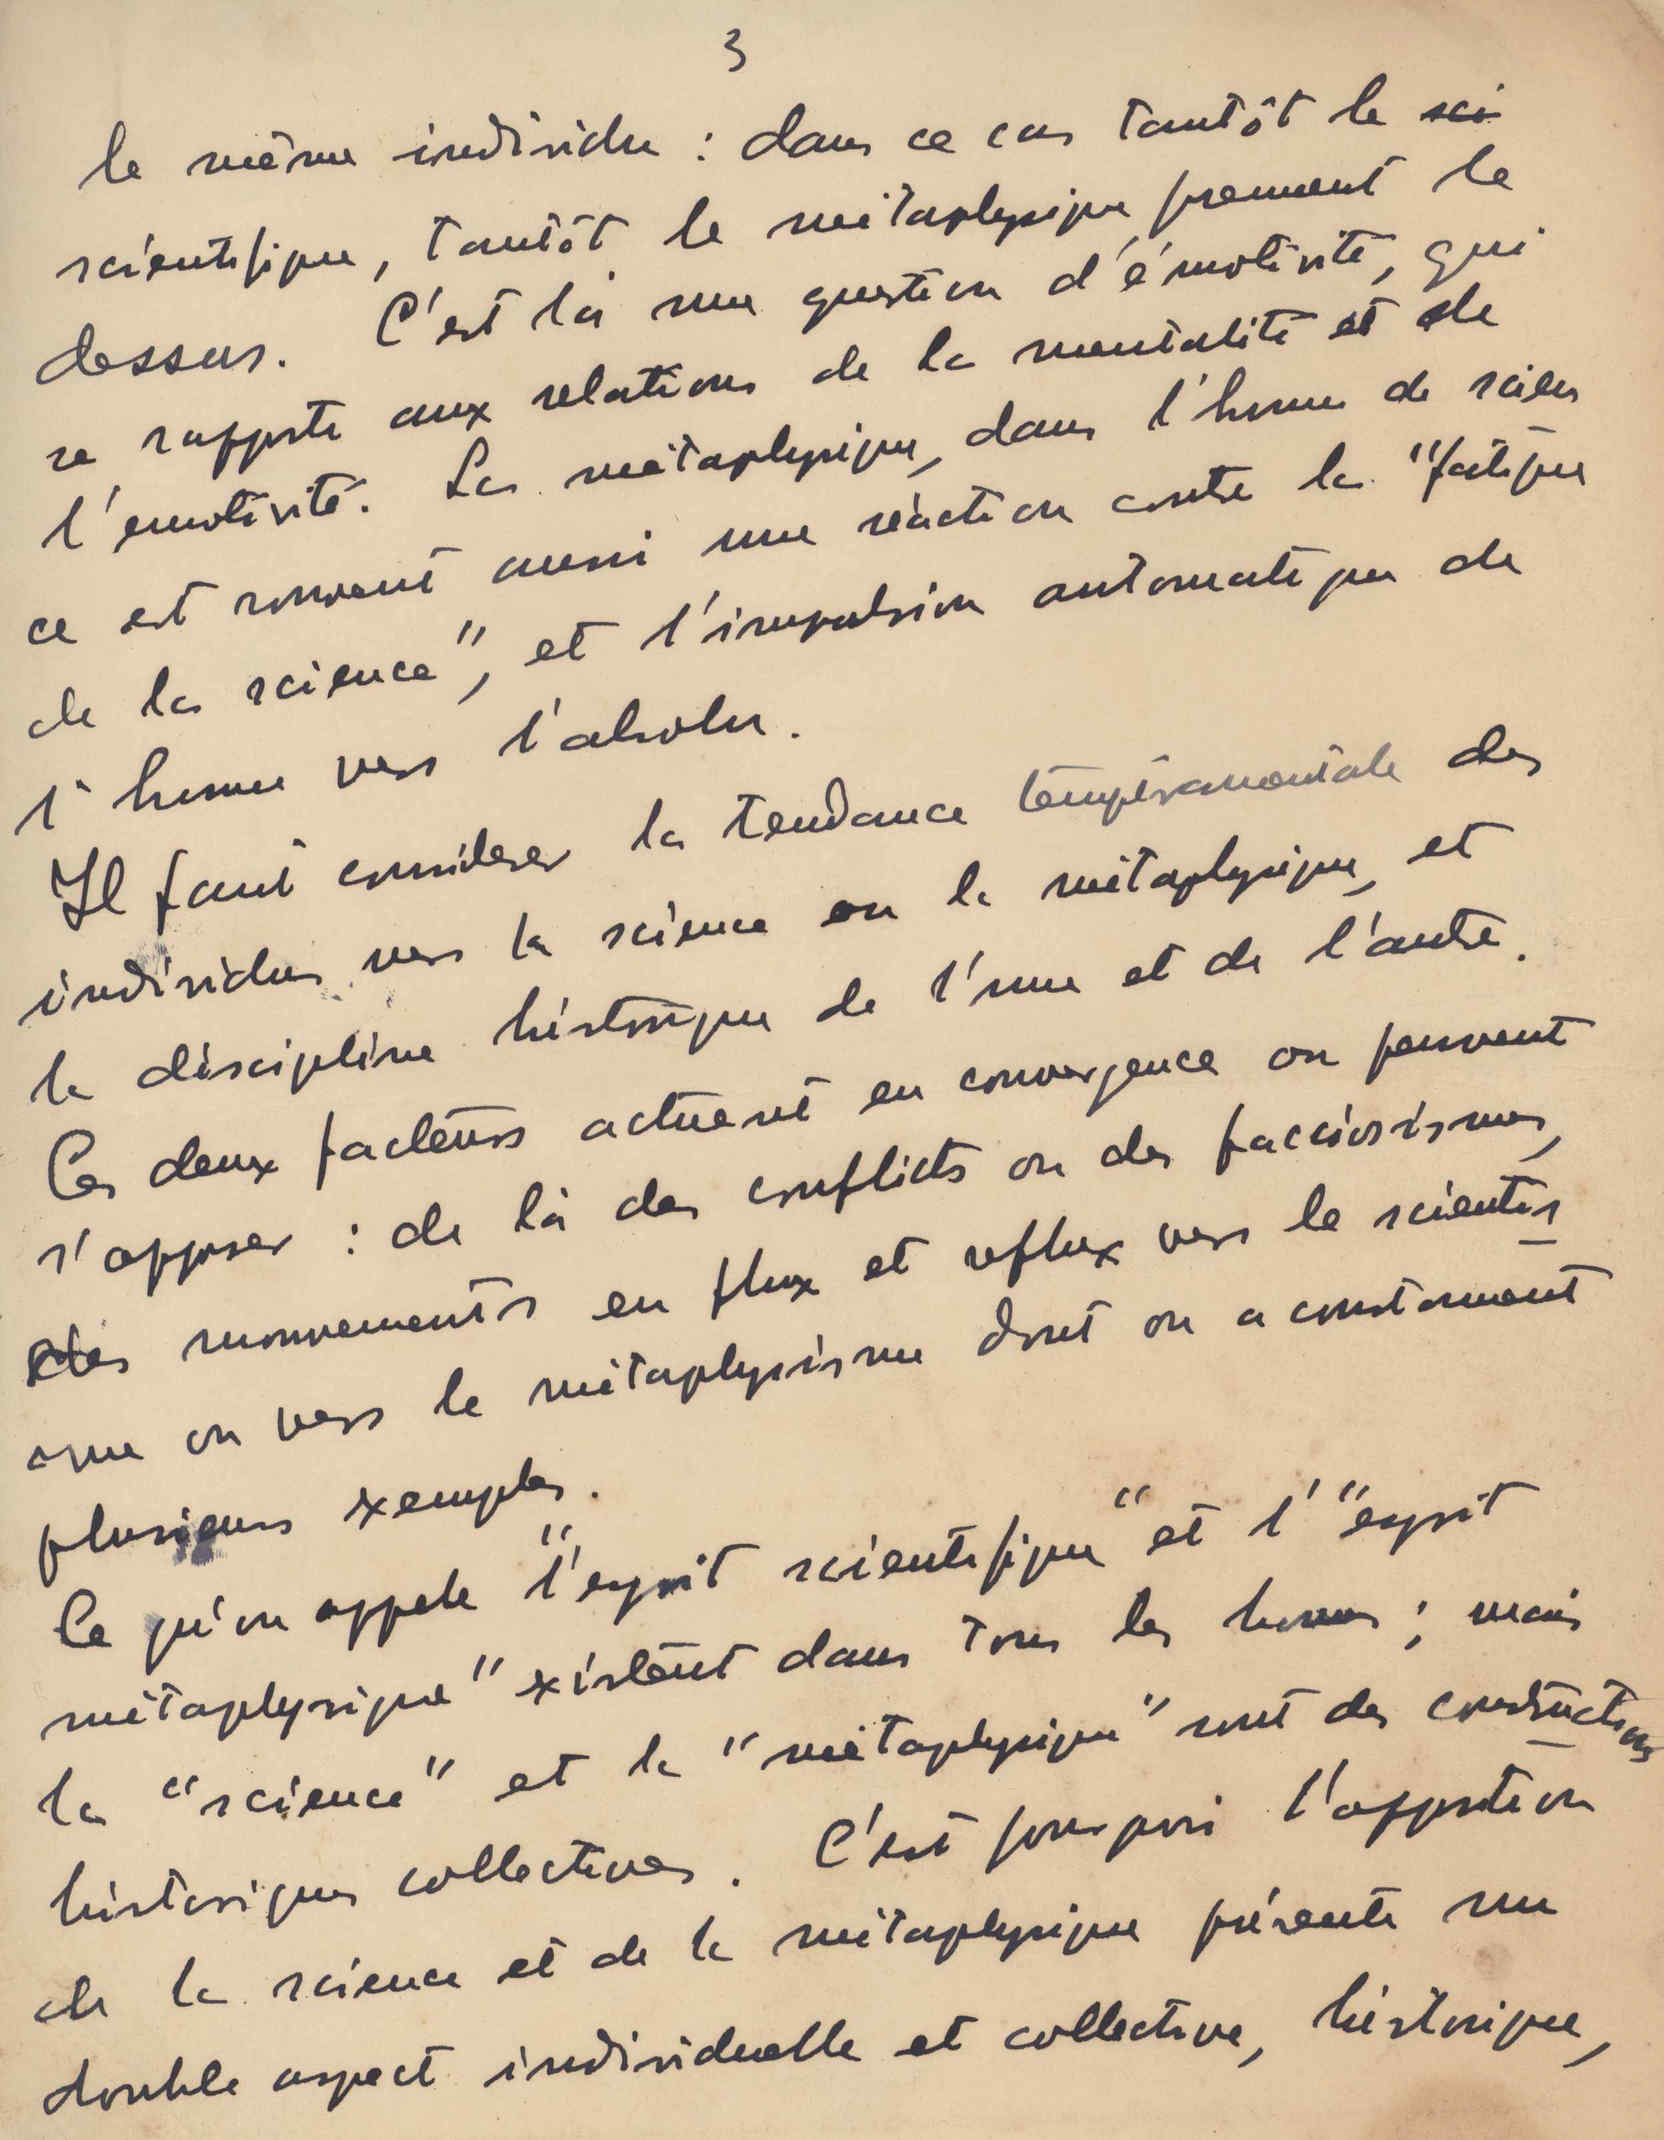 3
le même individu : dans ce cas tantôt le sci
scientifique, tantôt le métaphysique prennent le
dessus. C'est là une question d'émotivité, qui
se rapporte aux relations de la mentalité et de
l'emotivité. La métaphysique, dans l'homme de scien
ce est souvent aussi une réaction contre la "fatigue
de la science", et l'impulsion automatique de
l'homme vers l'absolu.
Il faut considerer la tendance tempéramentale des
individus vers la science ou la métaphysique, et
la discipline historique de l'une et de l'autre.
Ces deux facteurs actuent en convergence ou peuvent
s'opposer : de là des conflicts ou des facciosismes,
des mouvements en flux et reflux vers le scientis
me ou vers le métaphysisme dont on a constamment
plusieurs exemples.
Ce qu'on appele "l'esprit scientifique" et l'"esprit
métaphysique" existent dans tous les hommes ; mais
la "science" et la "métaphysique" sont des constructions
historiques collectives. C'est pourquoi l'opposition
de la science et de la métaphysique présente un
double aspect individuelle et collective, historique,